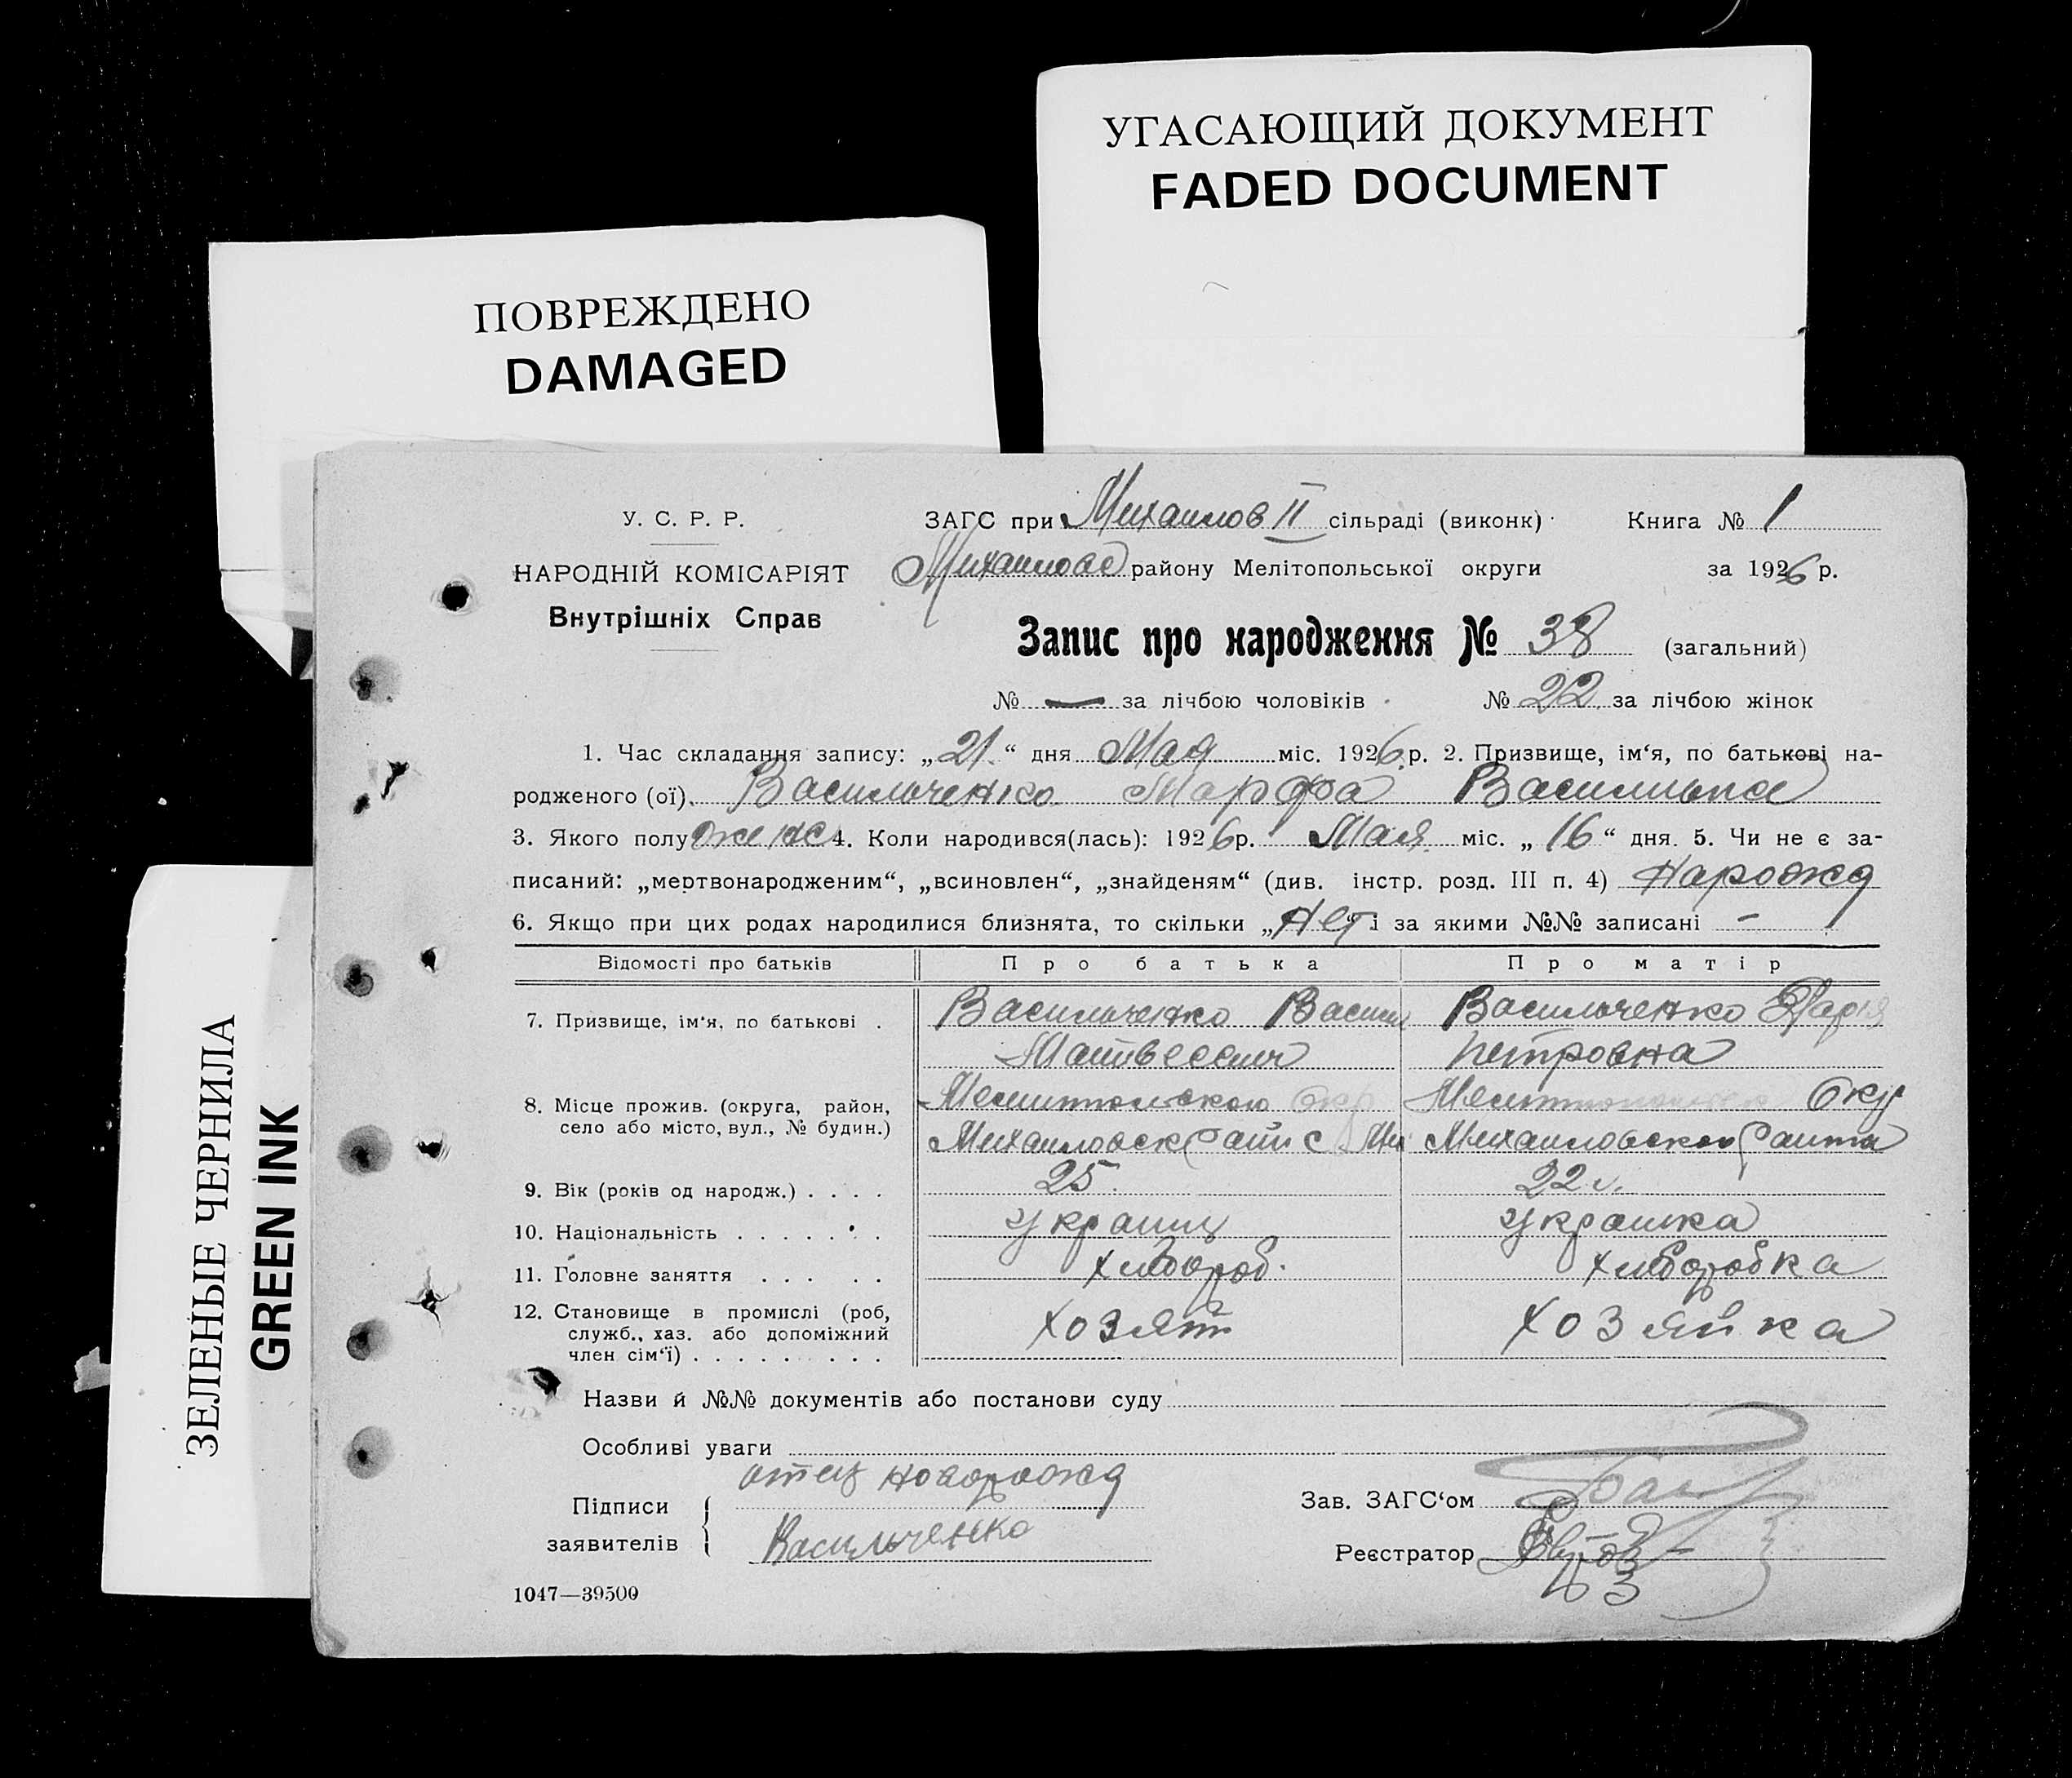 УГАСАЮЩИЙ ДОКУМЕНТ
FADED DOCUMENT
ПОВРЕЖДЕНО
DAMAGED
ЗЕЛЕНЫЕ ЧЕРНИЛА
GREEN INK
У. С. Р. Р.
НАРОДНІЙ КОМІСАРІЯТ
Внутрішніх Справ
ЗАГС при Михаилов II сільраді (виконк) Книга № 1
Михаиловс району Мелітопольської округи за 1926 р.
Запис про народження № 38 (загальний)
№ — за лічбою чоловіків № 22 за лічбою жінок
1. Час складання запису: „21“ дня Мая міс. 1926 р. 2. Призвище, ім‘я, по батькові на-
родженого (ої). Васильченко Марфа Васильна
3. Якого полу женс 4. Коли народився(лась): 1926 р. Мая міс. „16“ дня. 5. Чи не є за-
писаний: „мертвонародженим“, „всиновлен“, „знайденям“ (див. інстр. розд. III п. 4) Нарожд
6. Якщо при цих родах народилися близнята, то скільки „Нет“ і за якими №№ записані —
Відомості про батьків Про батька Про матір
7. Призвище, ім‘я, по батькові . Васильченко Васил Васильченко
Матвеевич Петровна
8. Місце прожив. (округа, район, Мелитопольскою Окр Окр
село або місто, вул., № будин.) Михаиловск Раий с Ми Михаиловского Раина
9. Вік (років од народж.) . . . . 25. 22 г.
10. Національність . . . . . . . Украинц Украинка
11. Головне заняття . . . . . Хлібороб. Хліборобка
12. Становище в промислі (роб,
служб., хаз. або допоміжний Хозяин Хозяйка
член сім‘ї) . . . . . . . . .
Назви й №№ документів або постанови суду
Особливі уваги
отец новорожд
Підписи Зав. ЗАГС‘ом
заявителів Васильченко Реєстратор
1047—39500